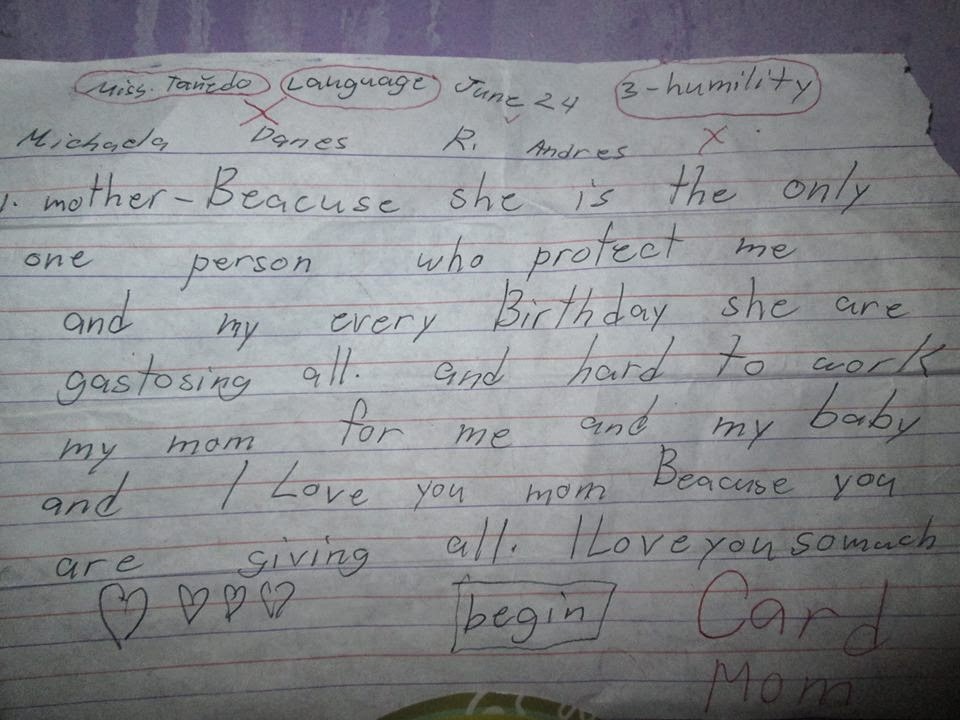 Miss. Tañedo Language June 24 3-humility
Michaela Danes R. Andres
1. mother - Beacuse she is the only
one person who protect me
and my every Birthday she are
gastosing all. and hard to work
my mom for me and my baby
and I Love you mom Beacuse you
are giving all. I Love you somach
begin Card
Mom